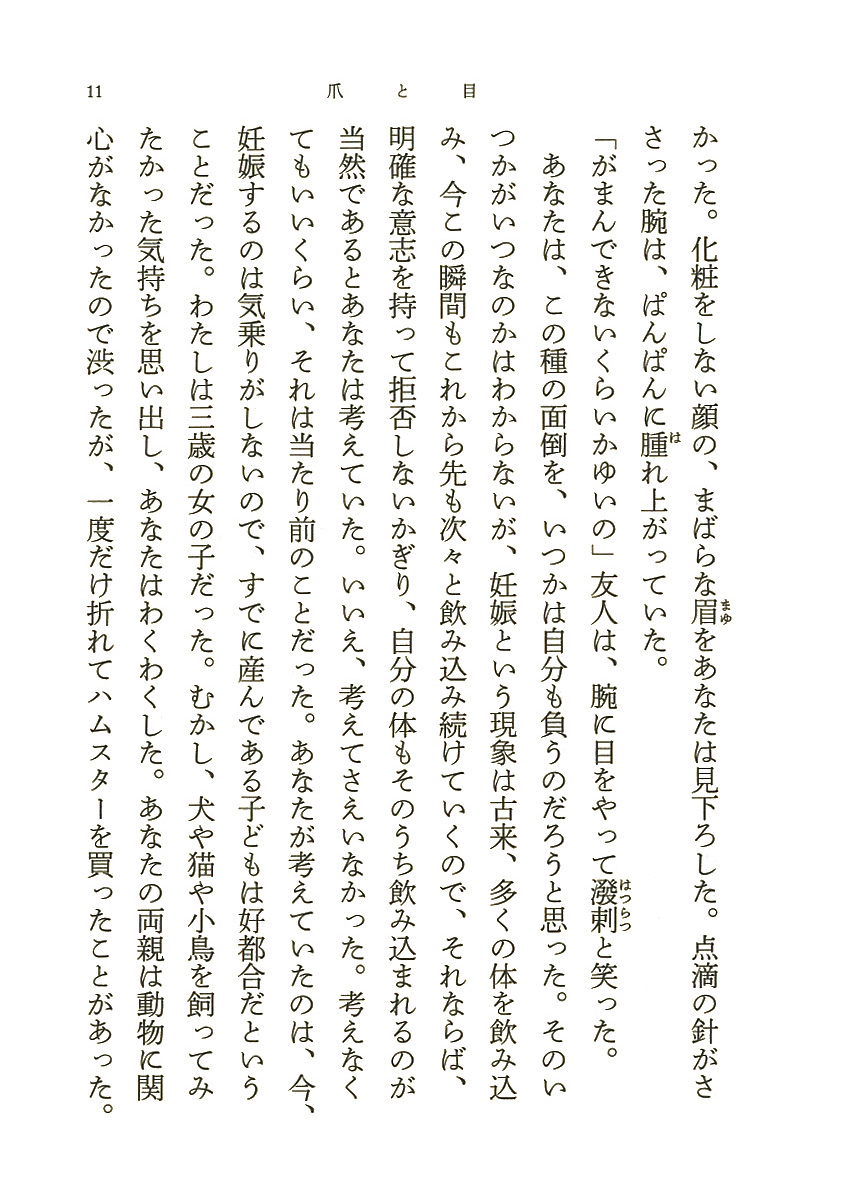 11
爪と目
かった。化粧をしない顔の、まばらな眉をあなたは見下ろした。点滴の針がさ
まゆ
さった腕は、ぱんぱんに腫れ上がっていた。
は
「がまんできないくらいかゆいの」友人は、腕に目をやって潑剌と笑った。
はつらつ
あなたは、この種の面倒を、いつかは自分も負うのだろうと思った。そのい
つかがいつなのかはわからないが、妊娠という現象は古来、多くの体を飲み込
み、今この瞬間もこれから先も次々と飲み込み続けていくので、それならば、
明確な意志を持って拒否しないかぎり、自分の体もそのうち飲み込まれるのが
当然であるとあなたは考えていた。いいえ、考えてさえいなかった。考えなく
てもいいくらい、それは当たり前のことだった。あなたが考えていたのは、今、
妊娠するのは気乗りがしないので、すでに産んである子どもは好都合だという
ことだった。わたしは三歳の女の子だった。むかし、犬や猫や小鳥を飼ってみ
たかった気持ちを思い出し、あなたはわくわくした。あなたの両親は動物に関
心がなかったので渋ったが、一度だけ折れてハムスターを買ったことがあった。